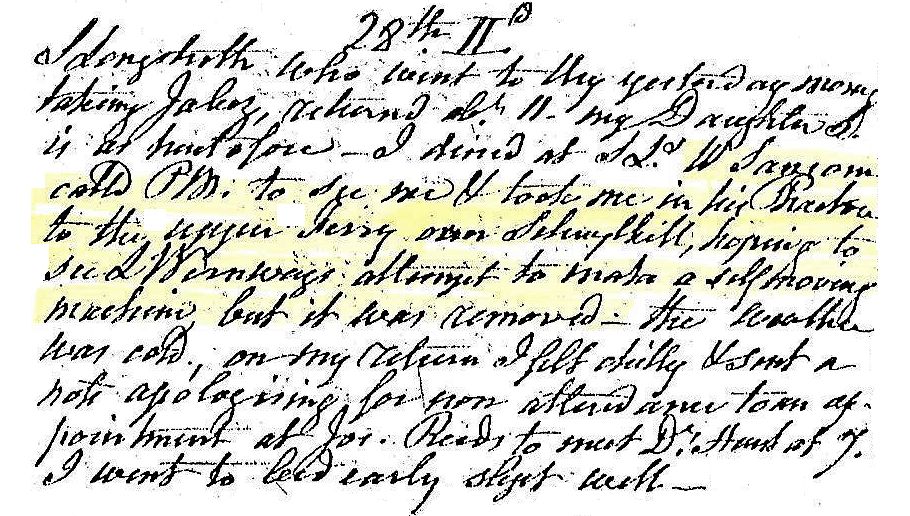 28th II
I Longstreth who went to thy yesterday morng
taking Jabez, returnd abt. 11 - my Daughter S.
is as heretofore - I dined at S Ls W Sansom
calld P M. to see me & took me in his
to the upper Ferry over Schuylkill, hoping to
see L Wernwags attempt to make a self moving
machine, but it was removed - the weather
was cold, on my return I felt chilly & sent a
note apologising for non attendance to an ap-
pointment at Jos. Reeds to meet Dr. at 7.
I went to bed early slept well -